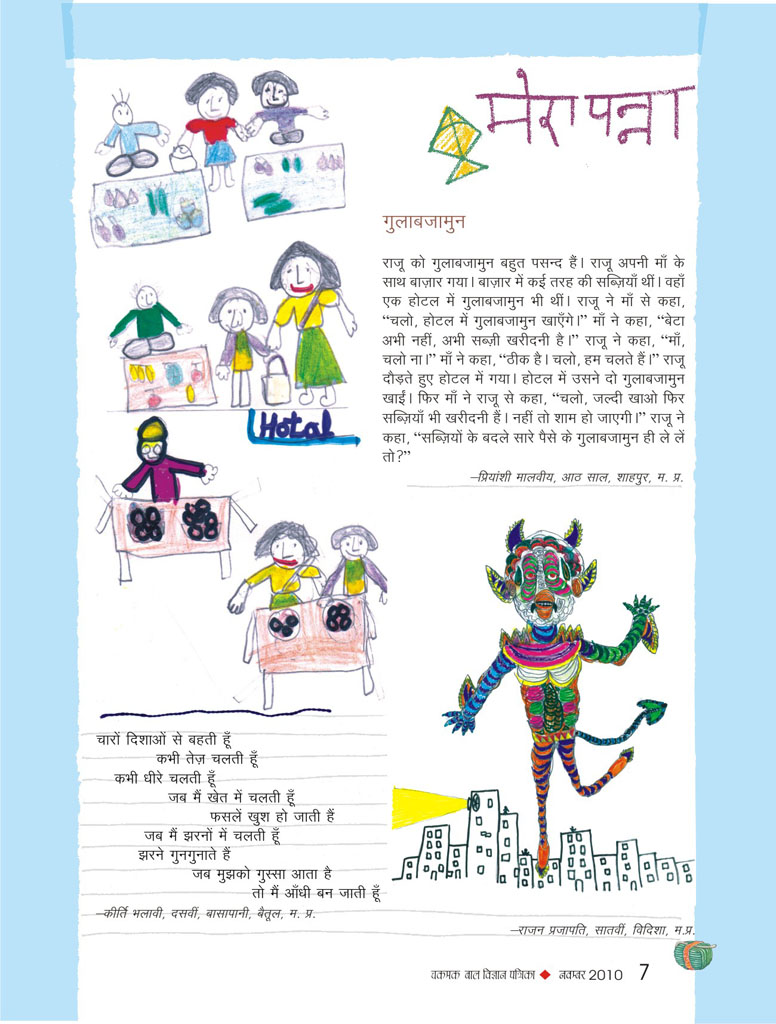 मेरा पन्ना
गुलाबजामुन
राजू को गुलाबजामुन बहुत पसन्द हैं। राजू अपनी माँ के
साथ बाज़ार गया। बाज़ार में कई तरह की सब्ज़ियाँ थीं। वहाँ
एक होटल में गुलाबजामुन भी थीं। राजू ने माँ से कहा,
“चलो, होटल में गुलाबजामुन खाएँगे।” माँ ने कहा, “बेटा
अभी नहीं, अभी सब्ज़ी खरीदनी है।” राजू ने कहा, “माँ,
चलो ना।” माँ ने कहा, “ठीक है। चलो, हम चलते हैं।” राजू
दौड़ते हुए होटल में गया। होटल में उसने दो गुलाबजामुन
खाईं। फिर माँ ने राजू से कहा, “चलो, जल्दी खाओ फिर
सब्ज़ियाँ भी खरीदनी हैं। नहीं तो शाम हो जाएगी।” राजू ने
कहा, “सब्ज़ियों के बदले सारे पैसे के गुलाबजामुन ही ले लें
तो?”
–प्रियांशी मालवीय, आठ साल, शाहपुर, म. प्र.
Hotal
चारों दिशाओं से बहती हूँ
कभी तेज़ चलती हूँ
कभी धीरे चलती हूँ
जब मैं खेत में चलती हूँ
फसलें खुश हो जाती हैं
जब मैं झरनों में चलती हूँ
झरने गुनगुनाते हैं
जब मुझको गुस्सा आता है
तो मैं आँधी बन जाती हूँ
–कीर्ति भलावी, दसवीं, बासापानी, बैतूल, म. प्र.
–राजन प्रजापति, सातवीं, विदिशा, म.प्र.
चकमक बाल विज्ञान पत्रिका ◆ नवम्बर 2010 7